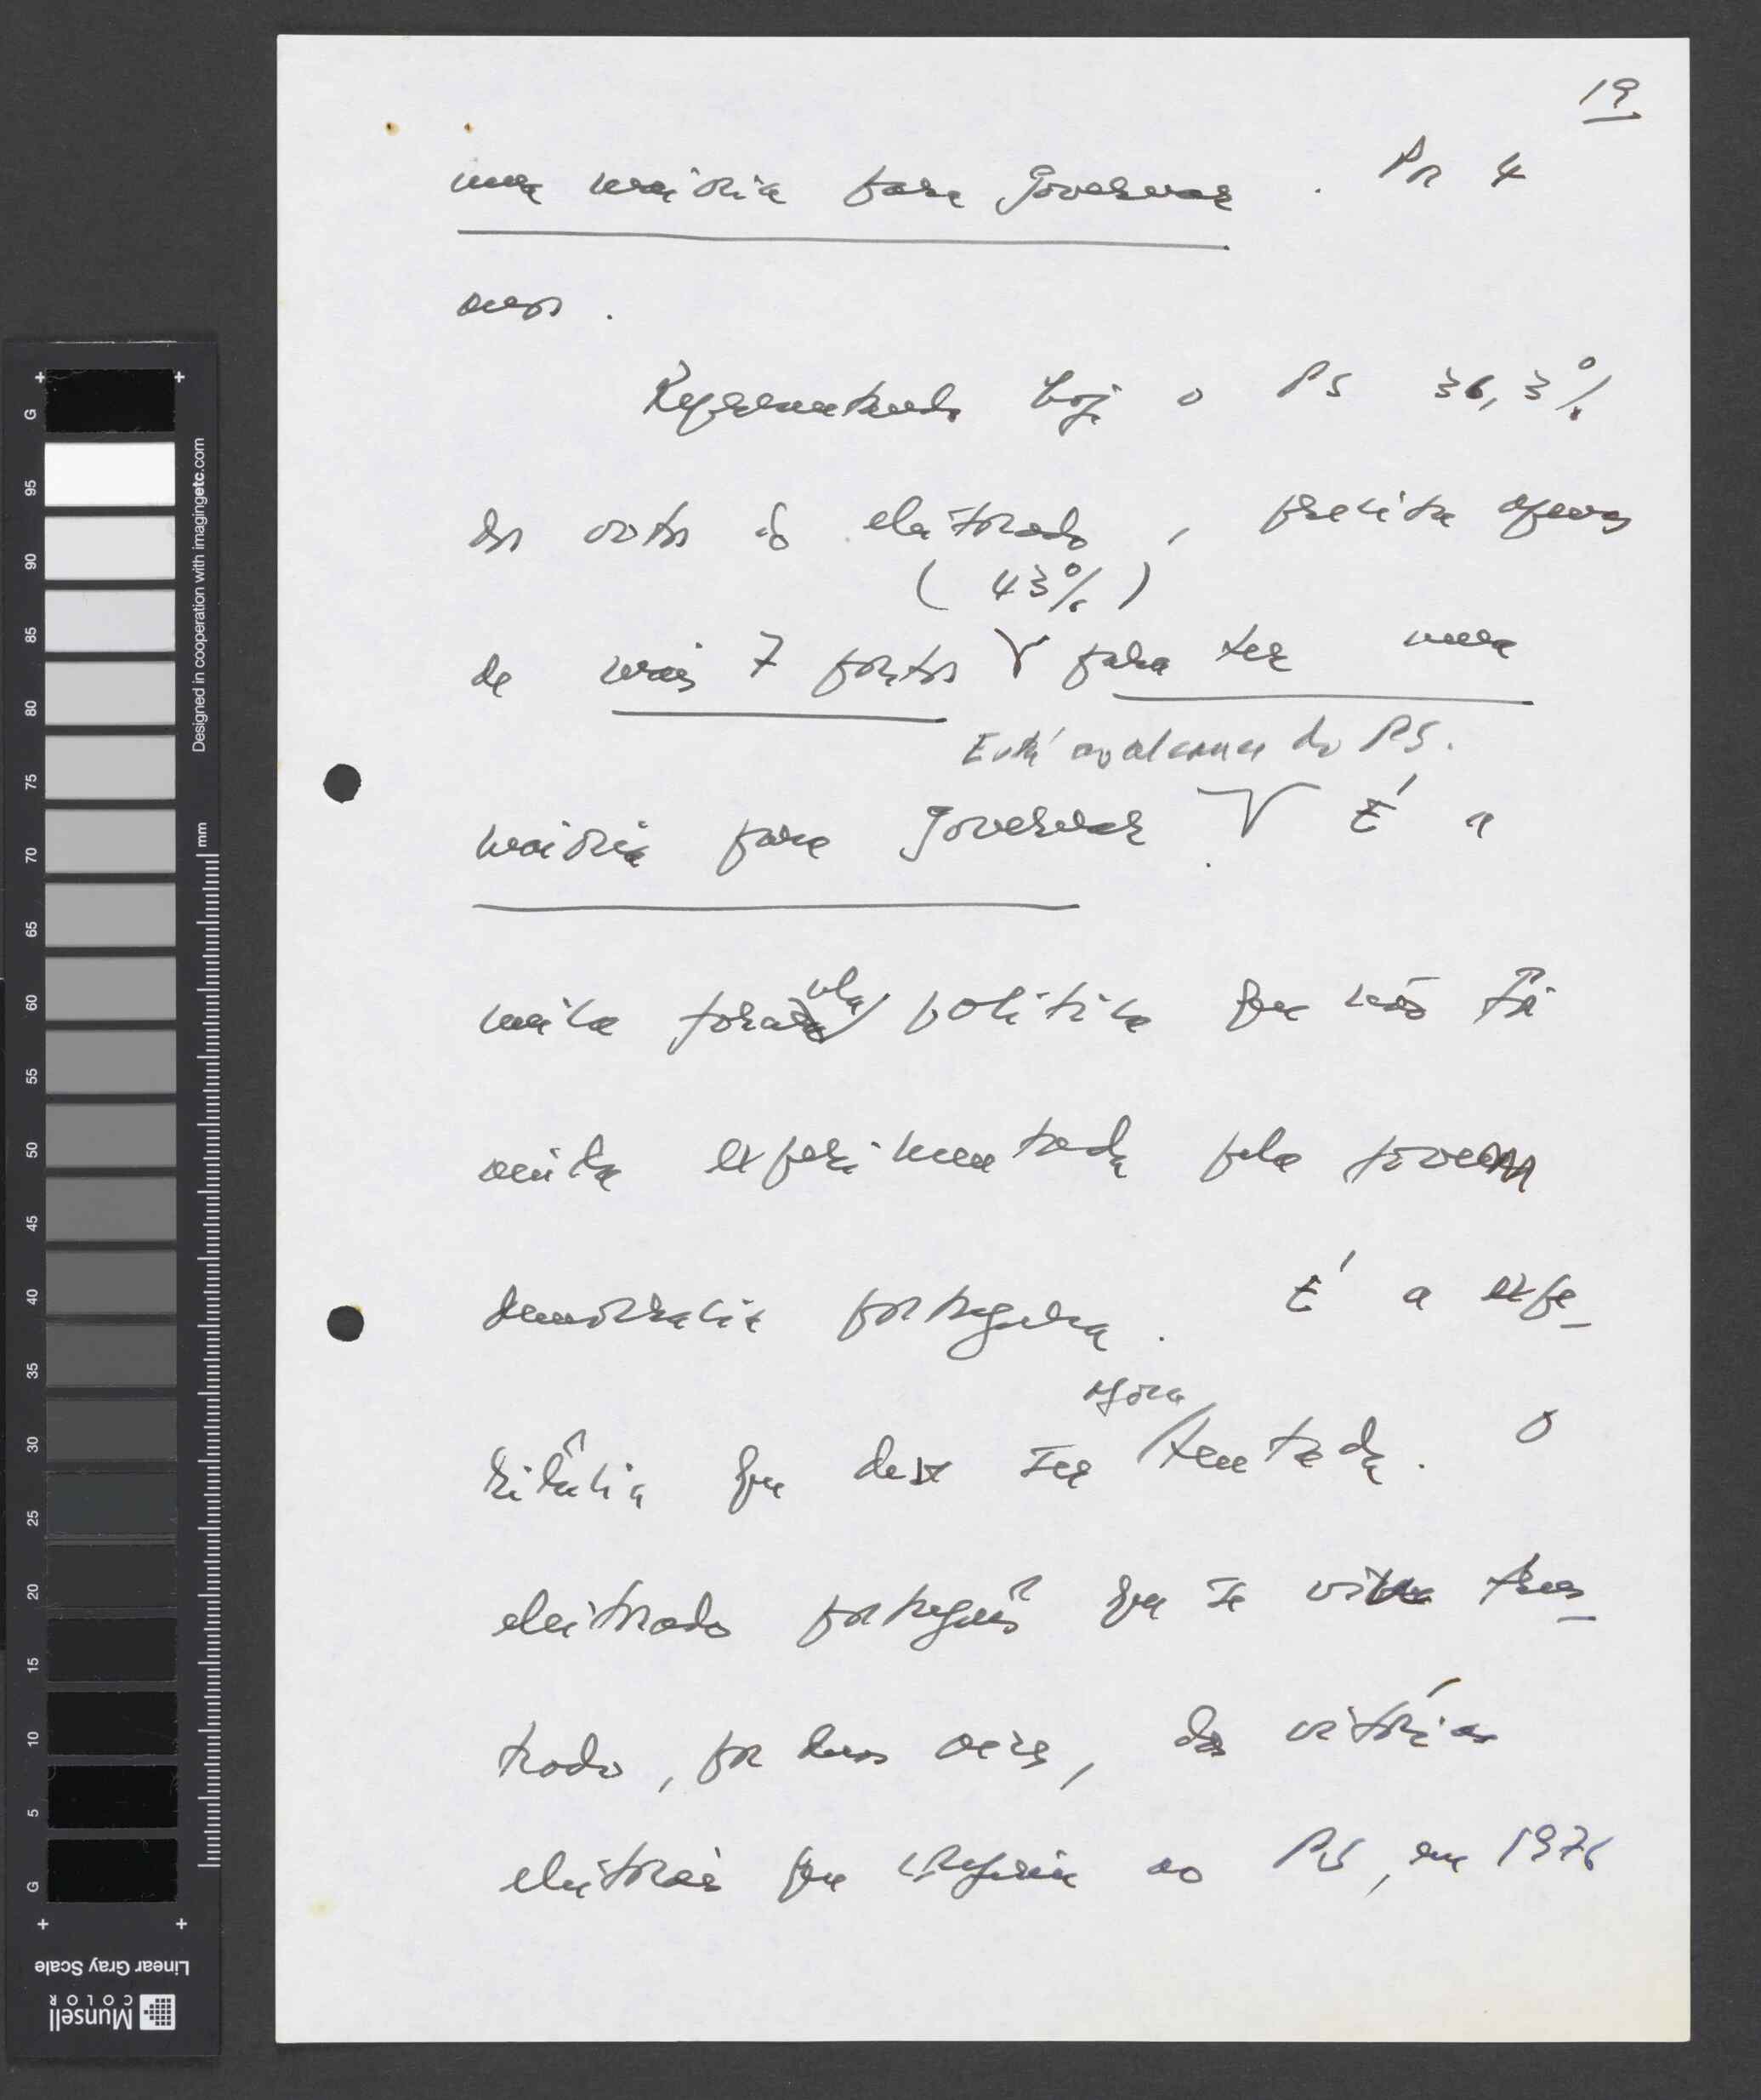 19
uma maioria para governar. Por 4
anos.
Representando hoje o PS 36,3%
dos votos do eleitorado, precisa apenas
(43%)
de mais 7 pontos para ter uma
Está ao alcance do PS.
maioria para governar. É a
única fórmula política que não foi
ainda experimentada pela jovem
democracia portuguesa. É a expe-
agora
riência que deve ser tentada. O
eleitorado português que se viu frus-
trado, por duas vezes, das vitórias
eleitorais que
ao PS, em 1976
Designed in cooperation with imagingetc.com
mm
G 95 90 85 80 75 70 65 60 55 50 45 40 35 30 25 20 15 10 5 G
Linear Gray Scale
Munsell
COLOR